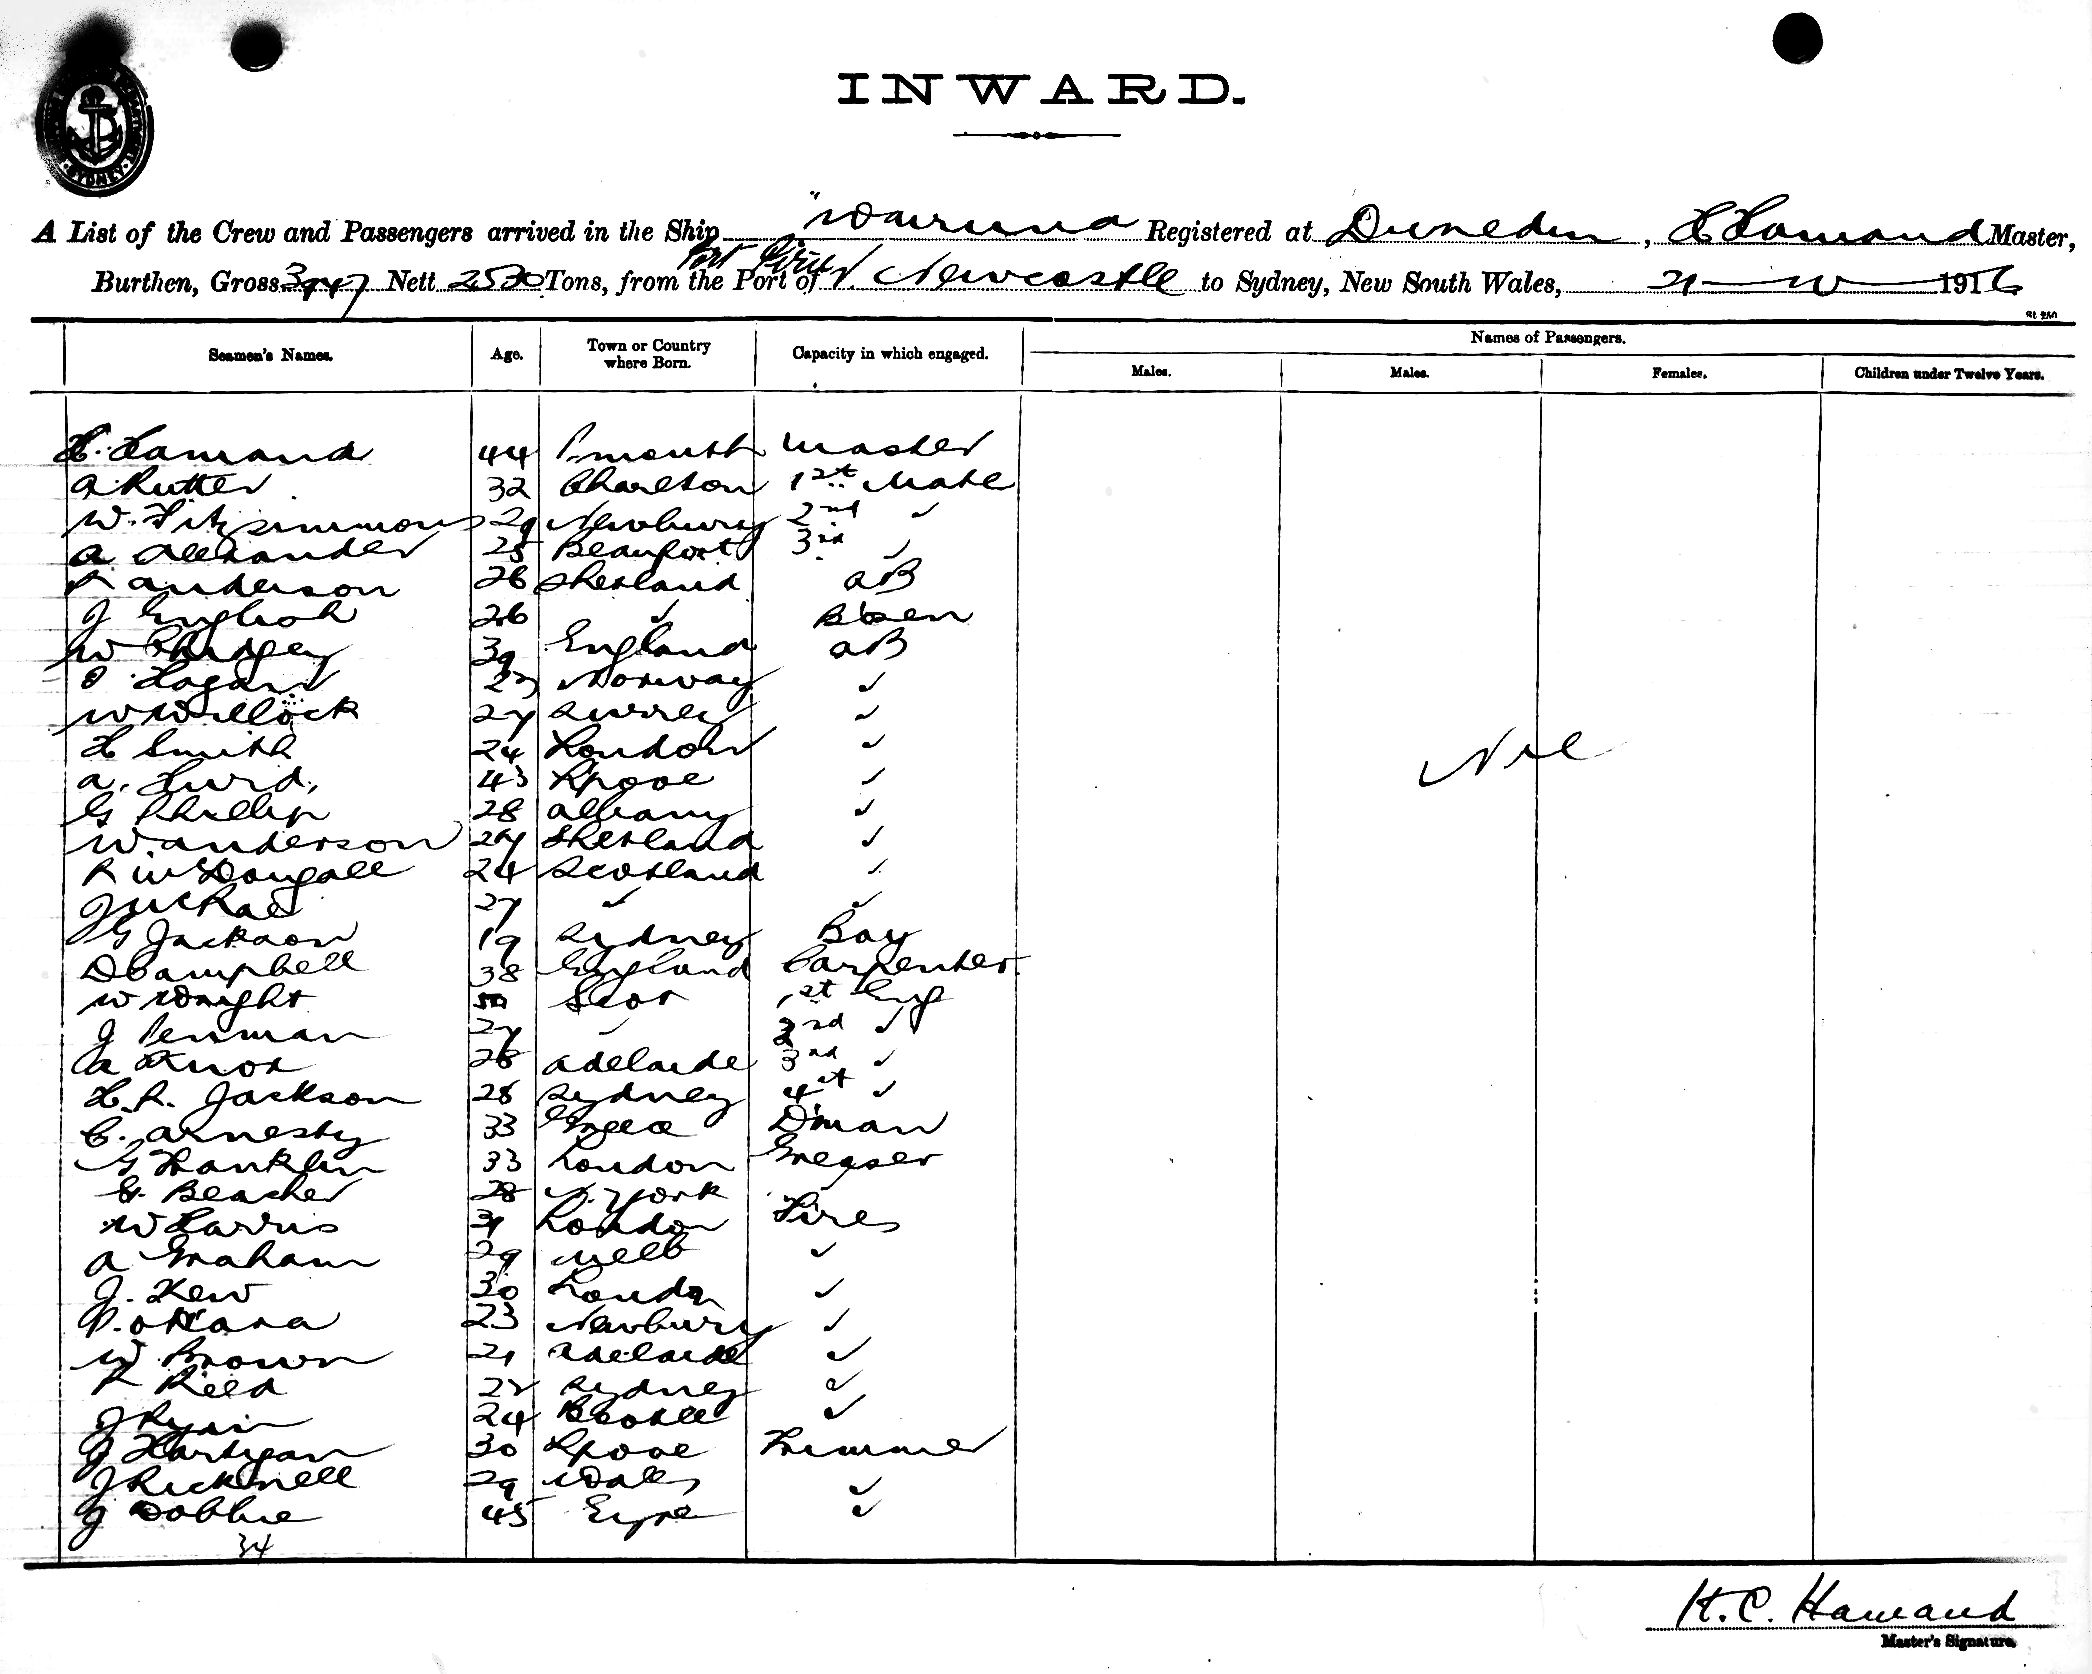 SYDNEY
INWARD.
A List of the Crew and Passengers arrived in the Ship "Wairuna Registered at Dunedin, H Hamand Master,
Burthen, Gross 3947 Nett 2530 Tons, from the Port of Port Pirie V. Newcastle to Sydney, New South Wales, 1916
Seamen's Names. Age. Town or Country where Born. Capacity in which engaged. Names of Passengers.
Males. Males. Females. Children under Twelve Years.
H. Hamand 44 Master
A Rutter 32 Charlton 1st Mate
W. Fitzsimmons 29 Newbury 2nd ✓
A Alexander 25 Beaufort 3rd ✓
R Anderson 26 Shetland AB
J English 26 ✓ B'sen
W Chidgey 39 England AB
O Hogan 23 Norway ✓
W Willock 27 Surrey ✓
H Smith 24 London ✓
A. Hurd. 43 L'pool ✓
G Phillip 28 Albany ✓
W Anderson 27 Shetland ✓
R McDougall 24 Scotland ✓
J McRae 27 ✓ ✓
G Jackson 19 Sydney Boy
D Campbell 38 England Carpenter
W Wright 50 Scot 1st Eng
J Penman 27 ✓ 2nd ✓
A Knox 28 Adelaide 3rd ✓
H. R. Jackson 28 Sydney 4th ✓
C. Arnesty 33 Greece D'man
G Franklin 33 London Greaser
G. Beacher 28 N. York
W Harris 31 London Fires
A Graham 29 Melb ✓
J. Kew 30 London ✓
P. O'Hara 23 Newbury ✓
W Brown 21 Adelaide ✓
R Reed 22 Sydney ✓
J Ryan 24 ✓
J Hartigan 30 L'pool Trimmer
J Ricknell 29 Wales ✓
J Dobbie 45 Eyre ✓
34
Nil
H. C. Hamand
Master's Signature.